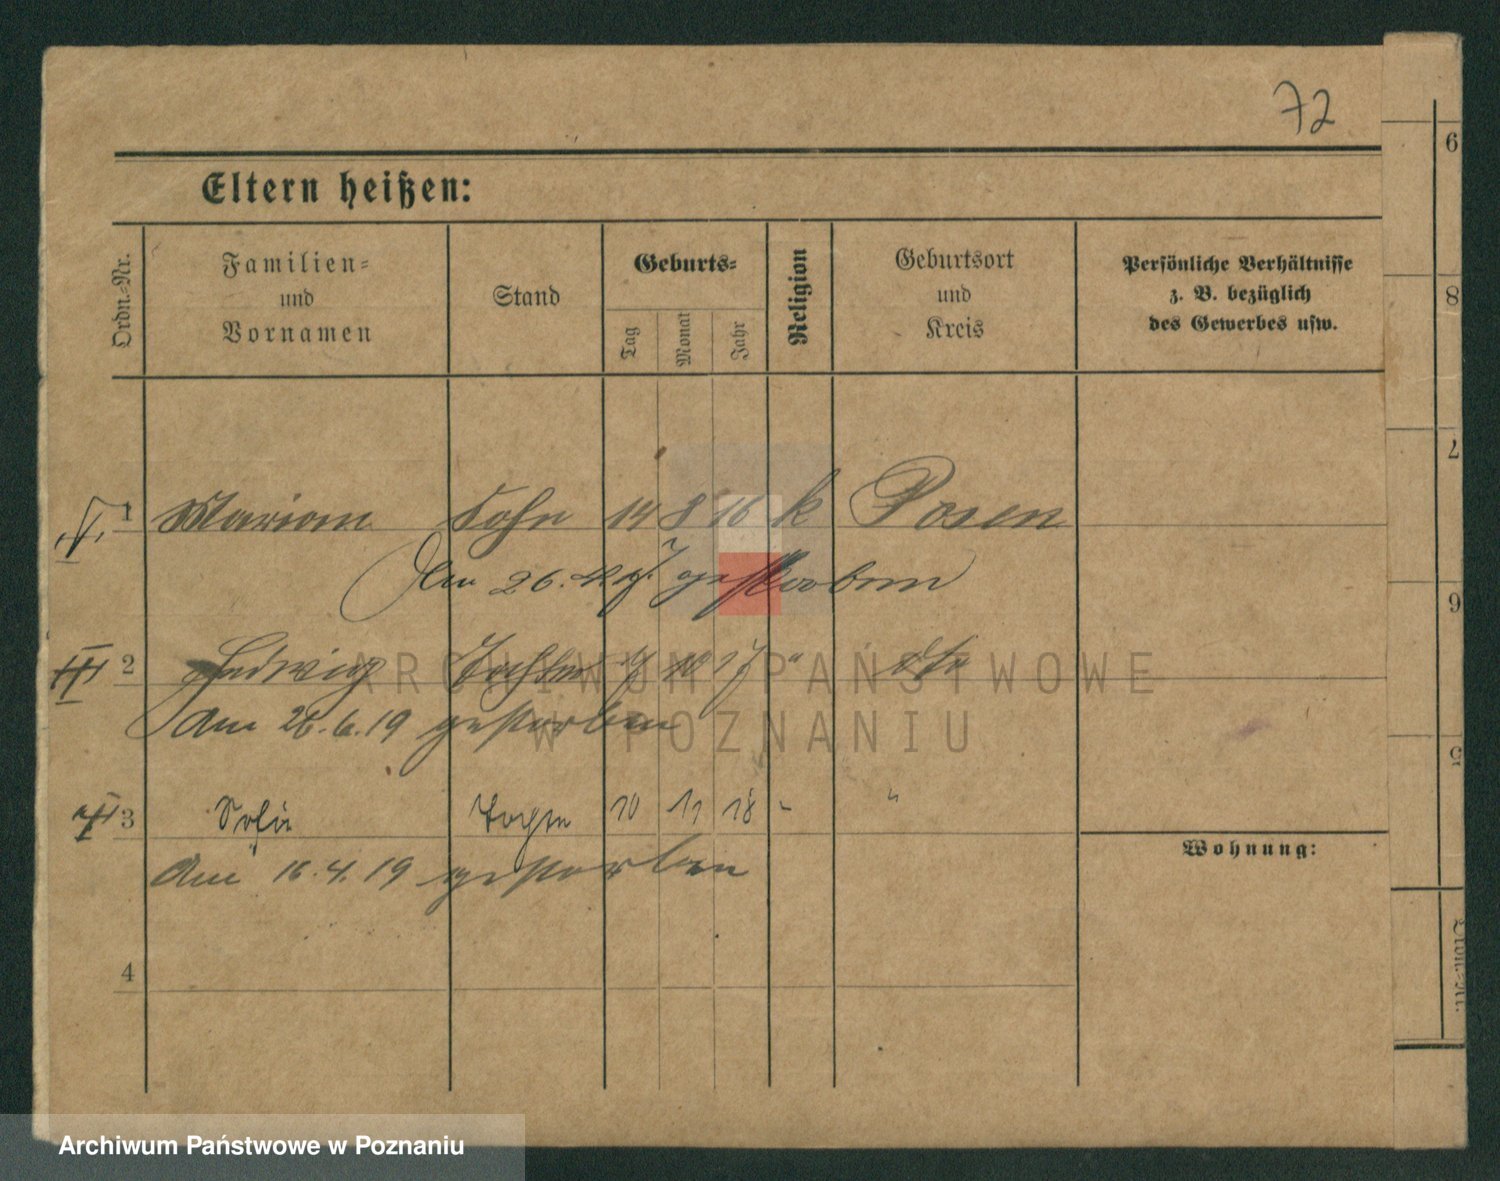 72
Eltern heißen:
Ordn.-Nr.
Familien=
und
Vornamen
Stand
Geburts=
Tag
Monat
Jahr
Religion
Geburtsort
und
Kreis
Persönliche Verhältnisse
z. B. bezüglich
des Gewerbes usw.
1 Marian Sohn 14 8 16 k Posen
Am 26. gestorben
2 Ludwig Tochter 10 17 " dto
Am 26.6.19 gestorben
3 Sofie Tochter 10 11 18 - "
Am 16.4.19 gestorben
4
Wohnung:
9
8
7
6
5
Ordn.-Nr.
ARCHIWUM PAŃSTWOWE
W POZNANIU
Archiwum Państwowe w Poznaniu